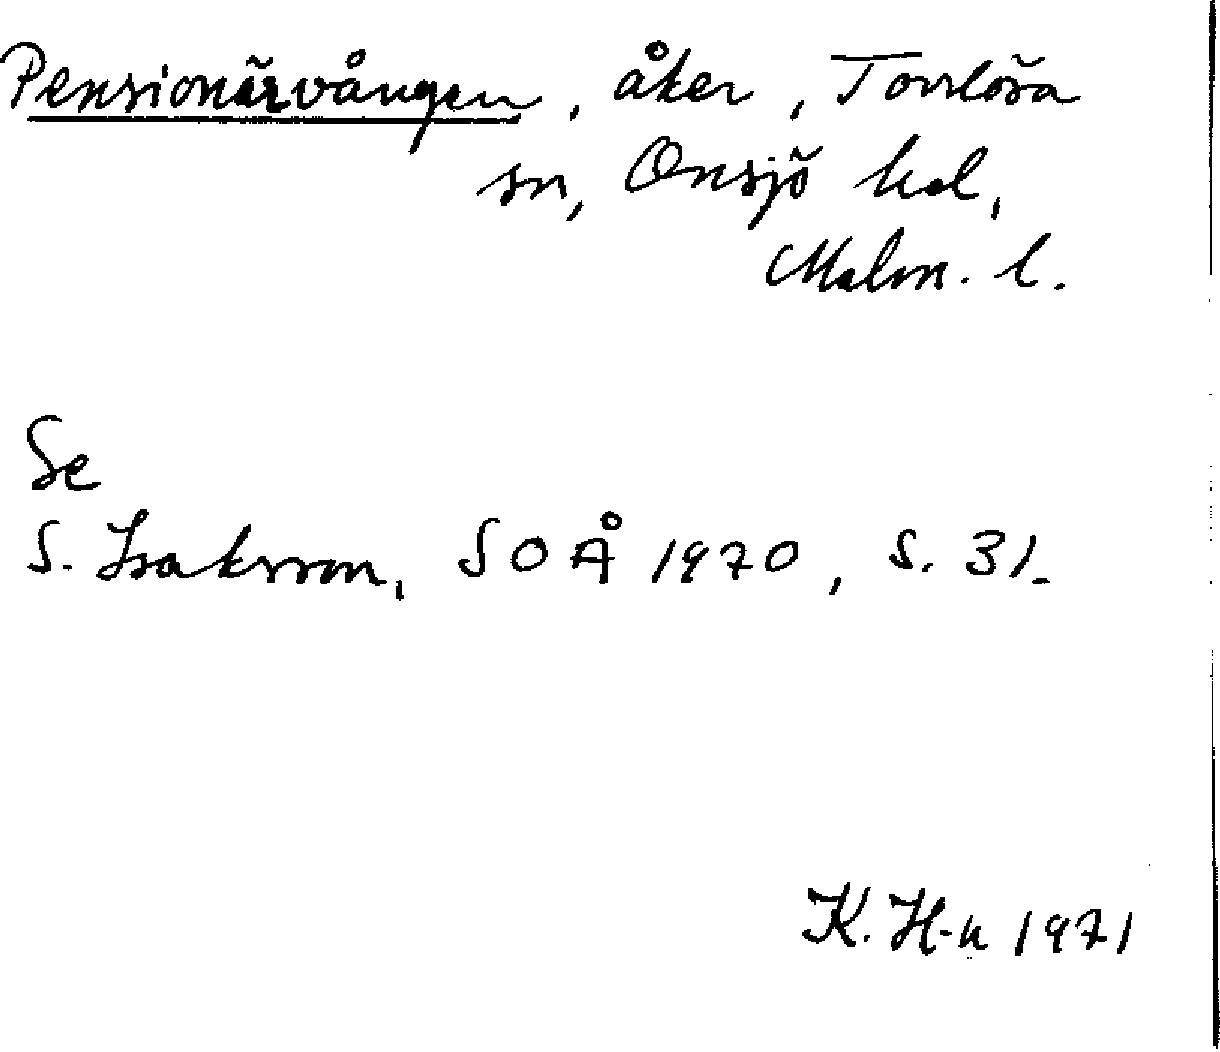 Pensionärvången, åker, Torrlösa
sn, Onsjö hd,
Malm. l.
Se
S. Isaksson, SOÅ 1970, S. 31.
K. H-n 1971